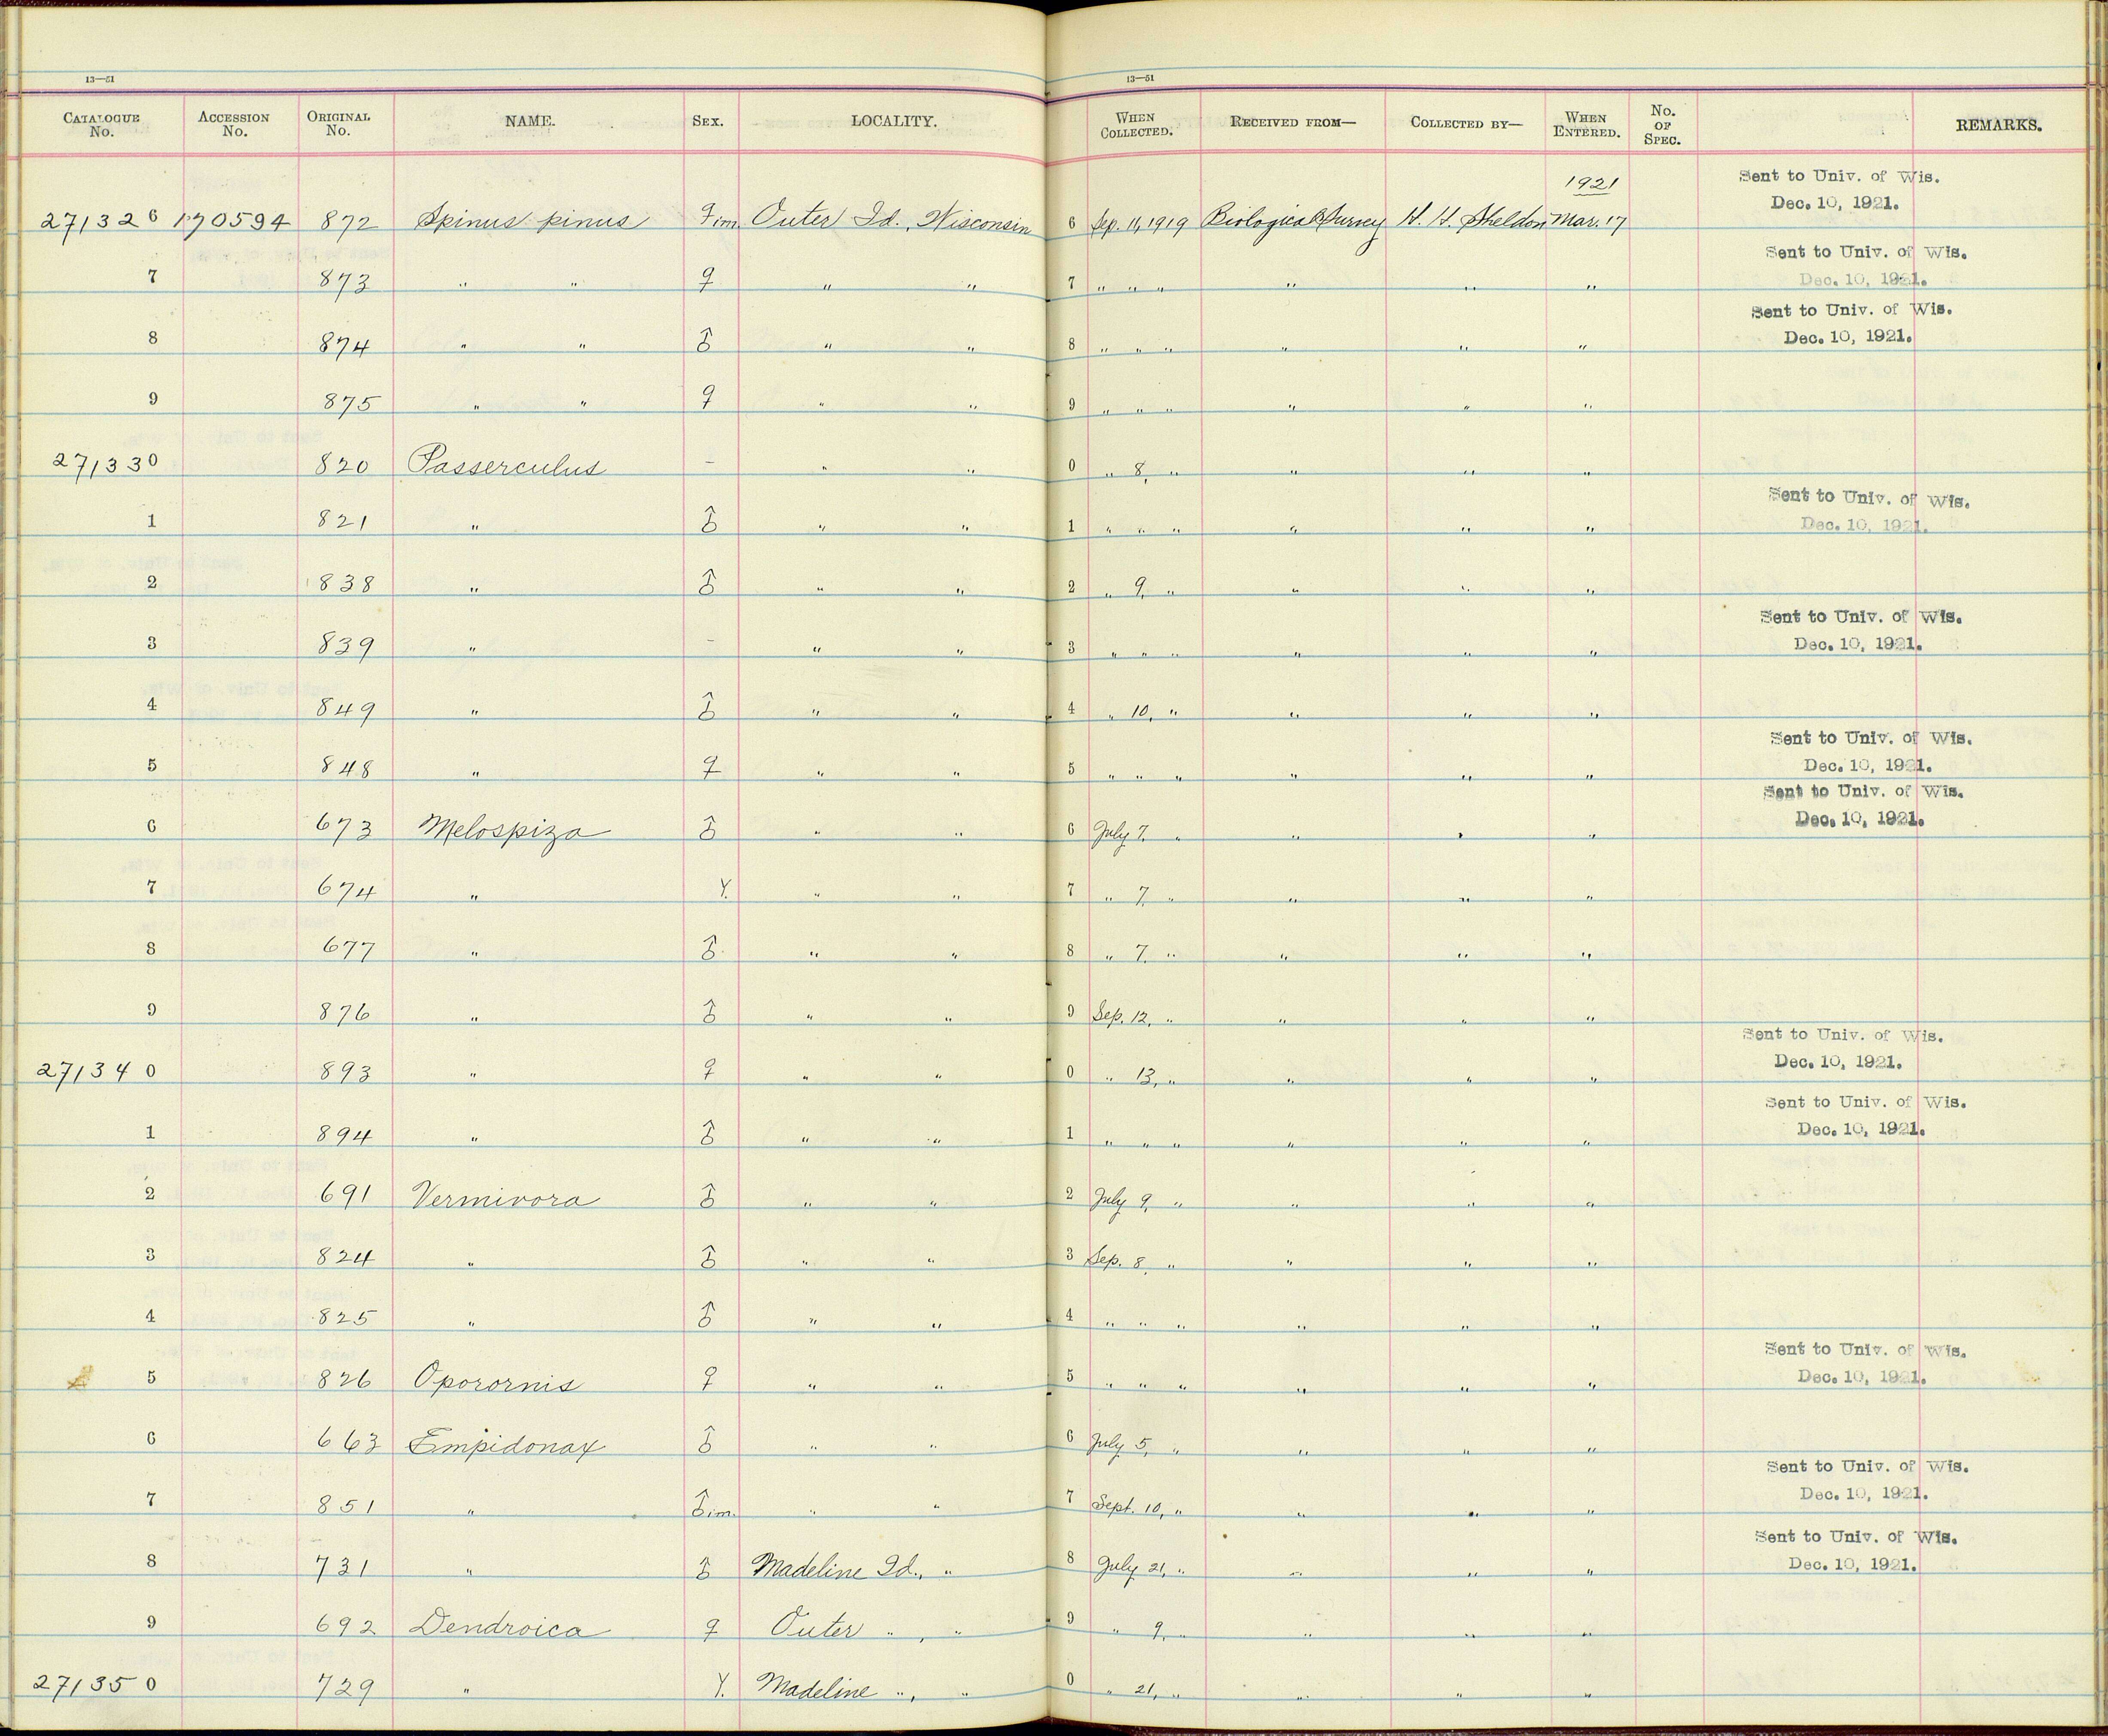 13—51 13—51
CATALOGUE No. ACCESSION No. ORIGINAL No. NAME. SEX. LOCALITY. WHEN COLLECTED. RECEIVED FROM— COLLECTED BY— WHEN ENTERED. No. OF SPEC. REMARKS.
1921 Sent to Univ. of Wis. Dec. 10, 1921.
271326 170594 872 Spinus pinus ♀im. Outer Id., Wisconsin 6 Sep. 11, 1919 Biological Survey H. H. Sheldon Mar. 17
7 873 " " ♀ " " 7 " " " " " " Sent to Univ. of Wis. Dec. 10, 1921.
8 874 " " ♂ " " 8 " " " " " " Sent to Univ. of Wis. Dec. 10, 1921.
9 875 " " ♀ " " 9 " " " " " "
271330 820 Passerculus – " " 0 " 8, " " " "
1 821 " ♂ " " 1 " " " " " " Sent to Univ. of Wis. Dec. 10, 1921.
2 838 " ♂ " " 2 " 9, " " " "
3 839 " – " " 3 " " " " " " Sent to Univ. of Wis. Dec. 10, 1921.
4 849 " ♂ " " 4 " 10, " " " "
5 848 " ♀ " " 5 " " " " " " Sent to Univ. of Wis. Dec. 10, 1921.
6 673 Melospiza ♂ " " 6 July 7, " " " " Sent to Univ. of Wis. Dec. 10, 1921.
7 674 " Y. " " 7 " 7, " " " "
8 677 " ♂ " " 8 " 7, " " " "
9 876 " ♂ " " 9 Sep. 12, " " " "
271340 893 " ♀ " " 0 " 13, " " " " Sent to Univ. of Wis. Dec. 10, 1921.
1 894 " ♂ " " 1 " " " " " " Sent to Univ. of Wis. Dec. 10, 1921.
2 691 Vermivora ♂ " " 2 July 9, " " " "
3 824 " ♂ " " 3 Sep. 8, " " " "
4 825 " ♂ " " 4 " " " " " "
5 826 Oporornis ♀ " " 5 " " " " " " Sent to Univ. of Wis. Dec. 10, 1921.
6 663 Empidonax ♂ " " 6 July 5, " " " "
7 851 " ♂im. " " 7 Sept. 10, " " " " Sent to Univ. of Wis. Dec. 10, 1921.
8 731 " ♂ Madeline Id., " 8 July 21, " " " " Sent to Univ. of Wis. Dec. 10, 1921.
9 692 Dendroica ♀ Outer " , " 9 " 9, " " " "
271350 729 " Y. Madeline " , " 0 " 21, " " " "